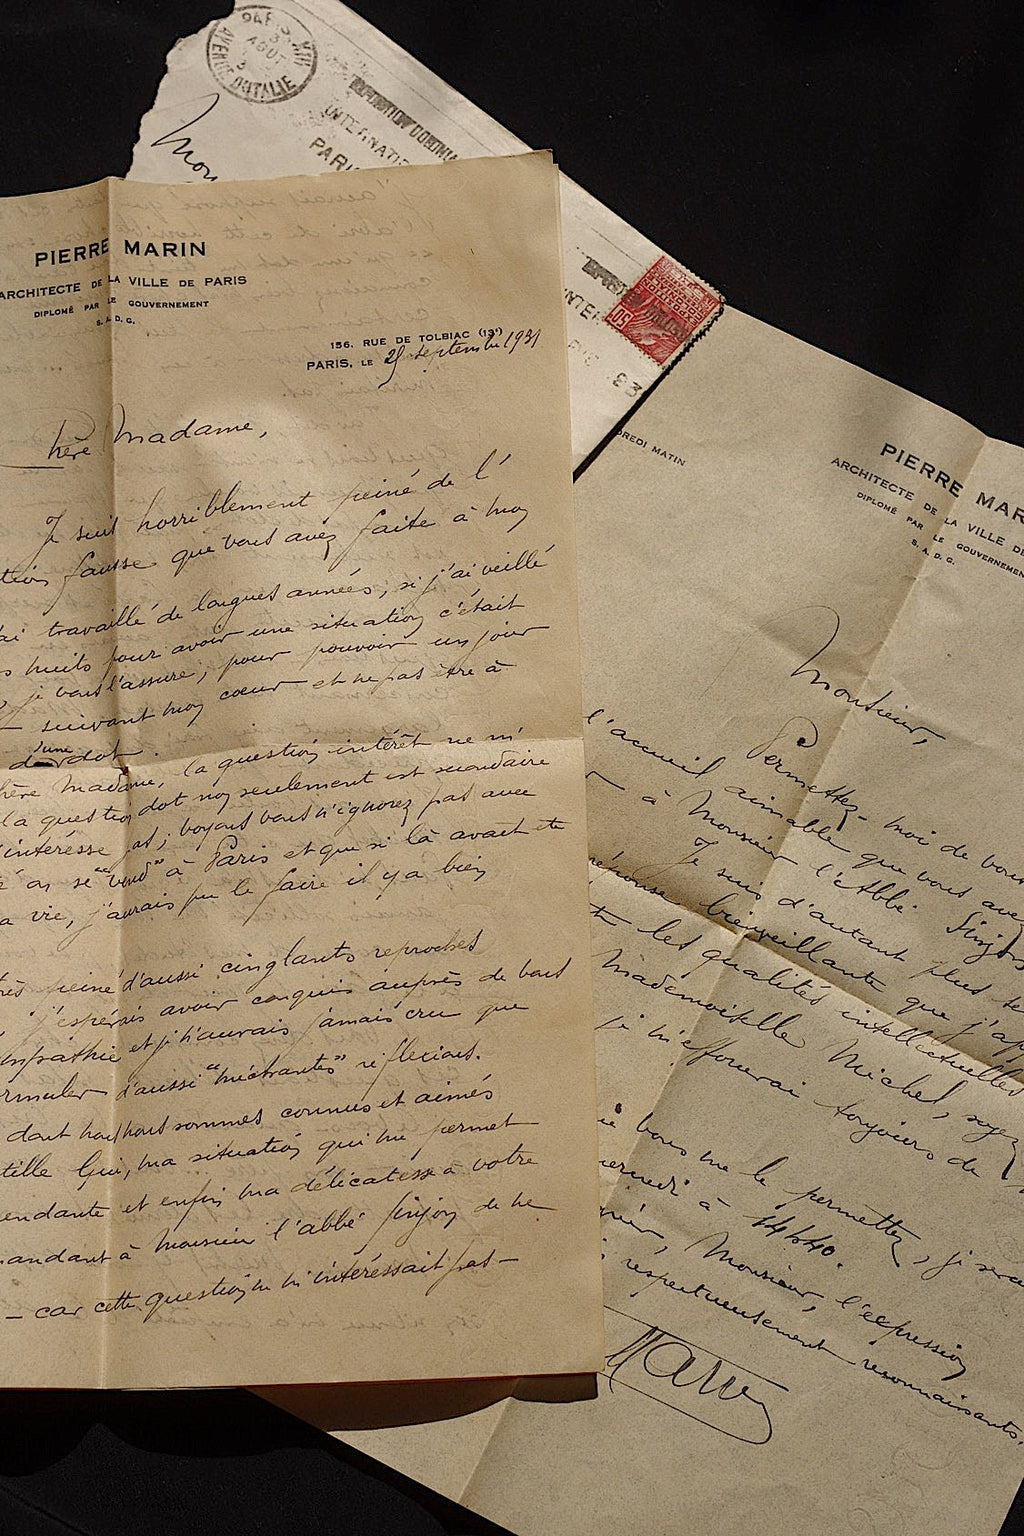 AVENUE D'ITALIE
AOUT
INTERNATI
PARI
PIERRE MARIN
ARCHITECTE DE LA VILLE DE PARIS
DIPLOMÉ PAR LE GOUVERNEMENT
S. A. D. G.
156, RUE DE TOLBIAC (13e)
PARIS, LE septembre 1931
hère Madame,
Je suis horriblement peiné de l'
fausse que vous avez faite à moy
ai travaillé de longues années, si j'ai veillé
s nuits pour avoir une situation c'était
je vous l'assure, pour pouvoir un jour
suivant moy coeur et ne pas être à
d'une dot.
hère Madame, la question intérêt ne m'
intéresse pas, la question dot noy seulement est secondaire
voyons vous n'ignorez pas avec
on se "vend" à Paris et que si là avait été
a vie, j'aurais pu le faire il y a bien
peiné d'aussi cinglants reproches
j'espérais avoir conquis auprès de vous
mpathie et je n'aurais jamais cru que
rmuler d'aussi "méchantes" réflexions.
dont nous sommes connus et aimés
ma situation qui me permet
endante et enfin ma délicatesse à votre
mandant à Monsieur l'abbé Sinjon de ne
– car cette question ne m'intéressait pas –
DREDI MATIN
PIERRE MAR
ARCHITECTE DE LA VILLE DE
DIPLOMÉ PAR LE GOUVERNEMEN
S. A. D. G.
Monsieur,
Permettez-moi de vous
l'accueil aimable que vous avez
à Monsieur l'Abbé Sinjon
Je suis d'autant plus
réponse bienveillante que j'ap
les qualités intellectuelles
Mademoiselle Michel, soyez
je m'efforcerai toujours de
vous me le permettez, je serai
à 14h40.
Monsieur, l'expression
respectueusement reconnaissants.
Marin